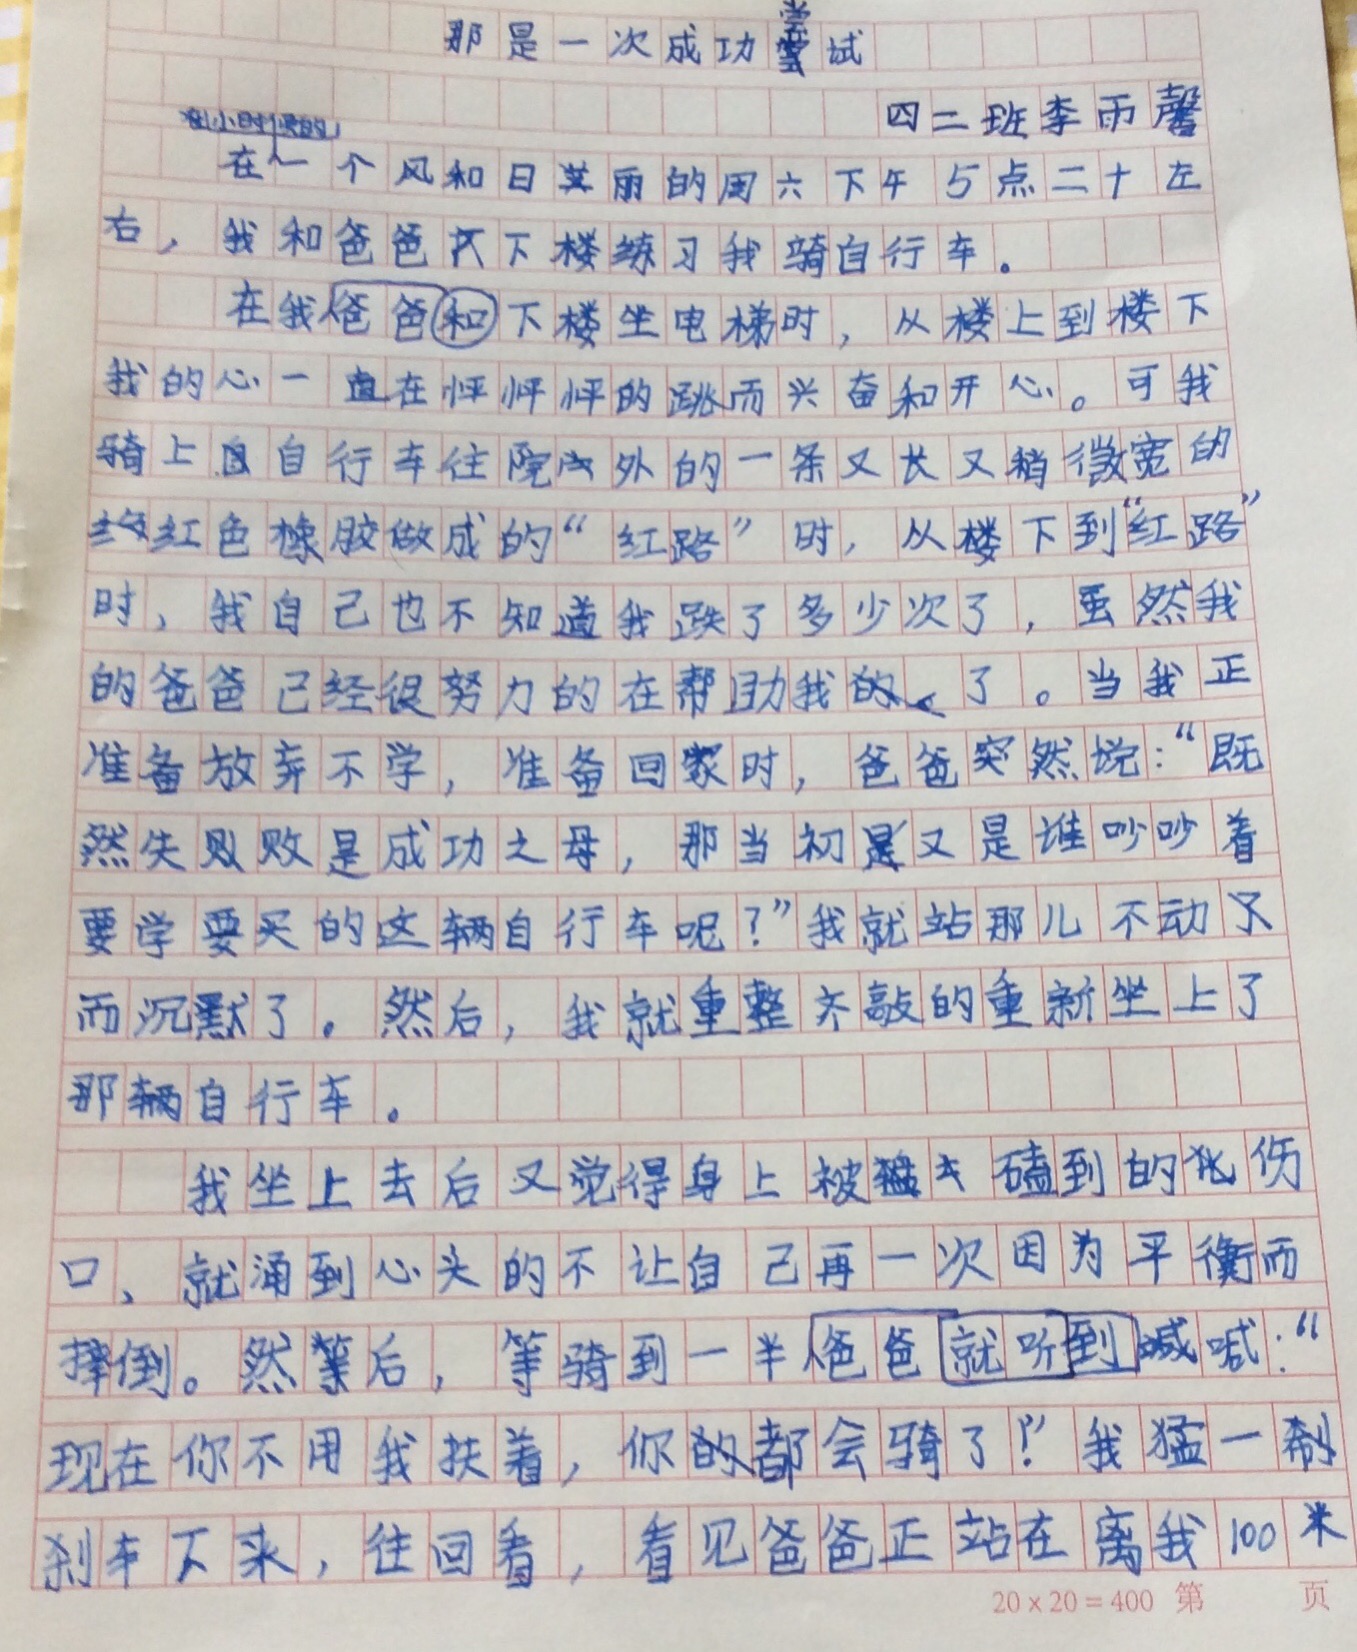 那是一次成功尝试
四二班李雨馨
在小时候的
在一个风和日英丽的周六下午5点二十左
右，我和爸爸下楼练习我骑自行车。
在我爸爸和下楼坐电梯时，从楼上到楼下
我的心一直在怦怦怦的跳而兴奋和开心。可我
骑上自自行车往院内外的一条又长又稍微宽的
红色橡胶做成的“红路”时，从楼下到“红路”
时，我自己也不知道我跌了多少次了，虽然我
的爸爸已经很努力的在帮助我的了。当我正
准备放弃不学，准备回家时，爸爸突然说：“既
然失败败是成功之母，那当初是又是谁吵吵着
要学要买的这辆自行车呢？”我就站那儿不动了
而沉默了。然后，我就重整齐敲的重新坐上了
那辆自行车。
我坐上去后又觉得身上被磕到的伤
口、就涌到心头的不让自己再一次因为平衡而
摔倒。然等后，等骑到一半爸爸就听到喊喊：“
现在你不用我扶着，你的都会骑了！”我猛一刹
刹车下来，往回看，看见爸爸正站在离我100米
20×20=400 第 页